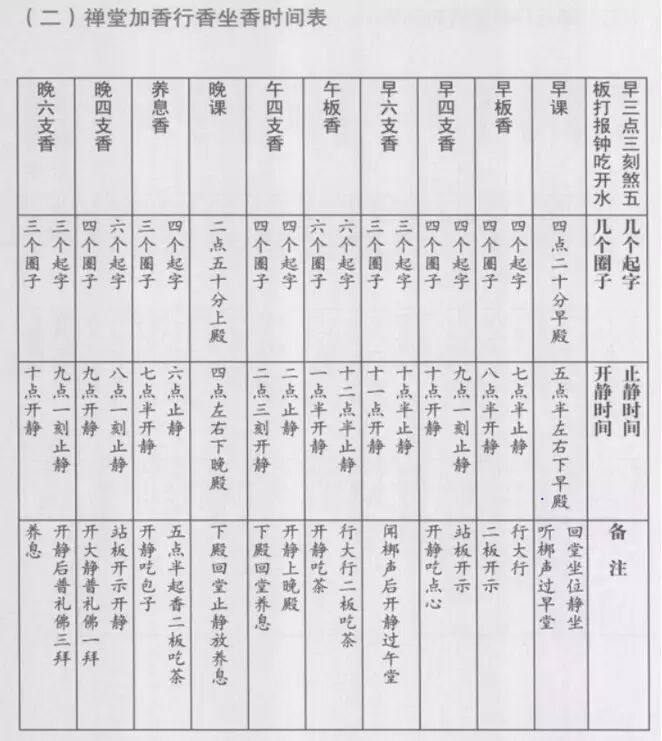 （二）禅堂加香行香坐香时间表
早三点三刻煞五
板打报钟吃开水
几个起字
几个圈子
止静时间
开静时间
备注
早课
四点二十分早殿
五点半左右下早殿
回堂坐位静坐
听梆声过早堂
早板香
四个起字
四个圈子
七点半止静
八点半开静
行大行
二板开示
早四支香
四个起字
四个圈子
九点一刻止静
十点开静
站板开示
开静吃点心
早六支香
三个起字
三个圈子
十点半止静
十一点开静
闻梆声后开静过午堂
午板香
六个起字
六个圈子
十二点半止静
一点半开静
行大行二板吃茶
开静吃茶
午四支香
四个起字
四个圈子
二点止静
二点三刻开静
开静上晚殿
下殿回堂养息
晚课
二点五十分上殿
四点左右下晚殿
下殿回堂止静放养息
养息香
四个起字
三个圈子
六点止静
七点半开静
五点半起香二板吃茶
开静吃包子
晚四支香
六个起字
四个圈子
八点一刻止静
九点开静
站板开示开静
开大静普礼佛一拜
晚六支香
三个起字
三个圈子
九点一刻止静
十点开静
开静后普礼佛三拜
养息